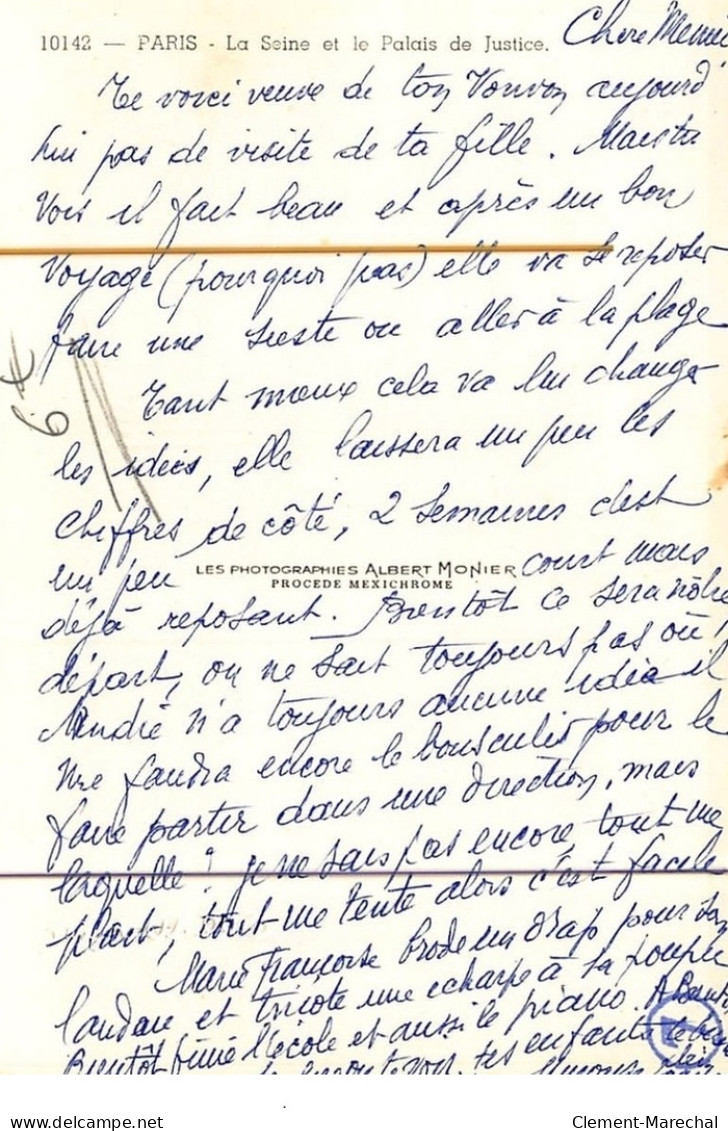 10142 — PARIS - La Seine et le Palais de Justice.
Chère Meme
Te voici veuve de ton Vonvon aujourd'
hui pas de visite de ta fille. Mais tu
vois il fait beau et après un bon
voyage (pourquoi pas) elle va se reposer
faire une sieste ou aller à la plage
Tant mieux cela va lui changer
les idées, elle laissera un peu les
chiffres de côté, 2 semaines c'est
un peu court mais
LES PHOTOGRAPHIES ALBERT MONIER
PROCEDE MEXICHROME
déjà reposant. Bientôt ce sera nôtre
départ, on ne sait toujours pas où
André n'a toujours aucune idée il
me faudra encore le bousculer pour le
faire partir dans une direction, mais
laquelle? je ne sais pas encore, tout me
plait, tout me tente alors c'est facile
Marie Françoise brode un drap pour son
landau et tricote une echarpe à sa poupée
Bientôt fini l'école et aussi le piano. A Bientôt
tes enfants
6
Clement-Marechal